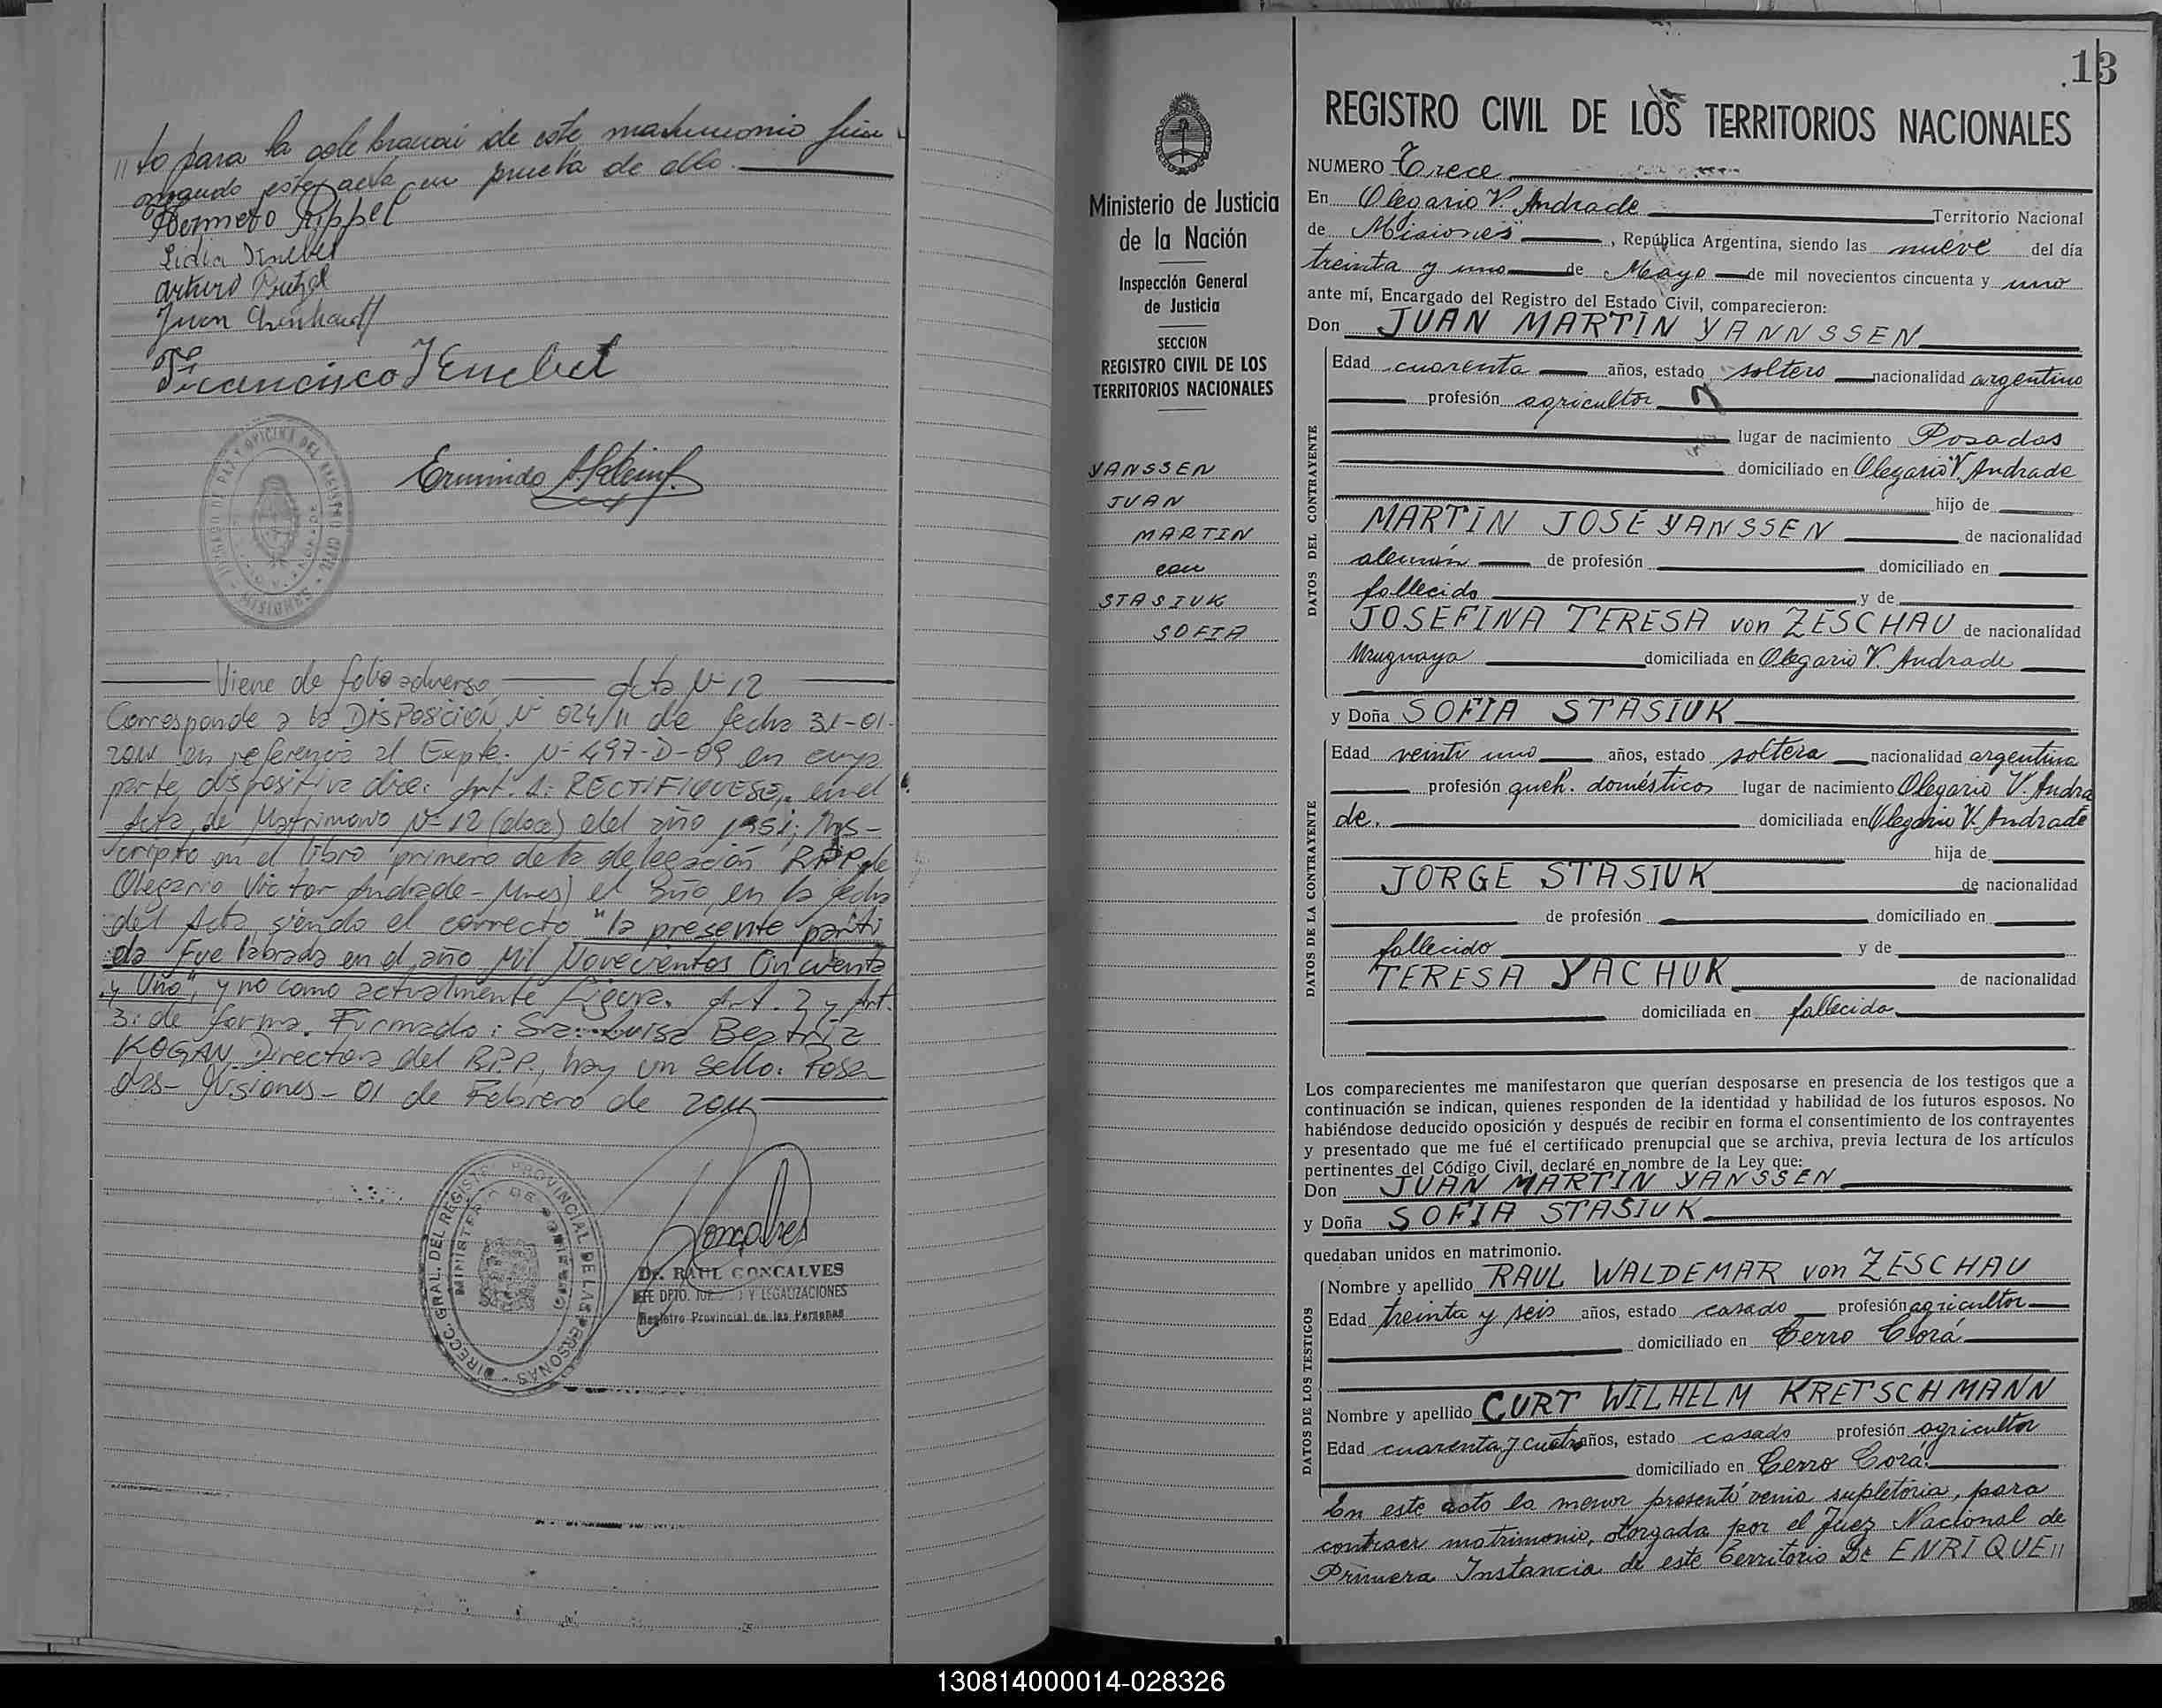 " to para la celebración de este matrimonio fir
mando esta acta en prueba de ello.
Hermeto Rippel
Lidia
Arturo
Juan
Francisco
Ermindo
JUZGADO DE PAZ Y OFICINA DEL REGISTRO CIVIL
MISIONES
Viene de folio adverso, acta Nº 12
Corresponde a la DISPOSICIÓN Nº 024/11 de fecha 31-01-
2011 en referencia al Expte. Nº 497-D-09 en cuya
parte dispositiva dice: Art. 1: RECTIFIQUESE, en el
Acta de Matrimonio Nº 12 (doce) del año 1951, Ins-
cripto en el libro primero de la delegación RPP de
Olegario Victor Andrade - Mnes) el año, en la fecha
del Acta, siendo el correcto "la presente parti
da Fue labrada en el año Mil Novecientos Cincuenta
y Uno", y no como actualmente Figura. Art. 2 y Art.
3: de forma. Firmado: Sra. Luisa Beatriz
KOGAN, Directora del R.P.P., hay un sello. Posa
das - Misiones - 01 de Febrero de 2011
DIRECC. GRAL. DEL REGISTRO PROVINCIAL DE LAS PERSONAS
MINISTERIO DE GOBIERNO
Goncalves
Dr. RAUL GONCALVES
JEFE DPTO. Y LEGALIZACIONES
Registro Provincial de las Personas
Ministerio de Justicia
de la Nación
Inspección General
de Justicia
SECCION
REGISTRO CIVIL DE LOS
TERRITORIOS NACIONALES
YANSSEN
JUAN
MARTIN
con
STASIUK
SOFIA
13
REGISTRO CIVIL DE LOS TERRITORIOS NACIONALES
NUMERO Trece
En Olegario V. Andrade Territorio Nacional
de Misiones, República Argentina, siendo las nueve del día
treinta y uno de Mayo de mil novecientos cincuenta y uno
ante mí, Encargado del Registro del Estado Civil, comparecieron:
Don JUAN MARTIN YANNSSEN
DATOS DEL CONTRAYENTE
Edad cuarenta años, estado soltero nacionalidad argentino
profesión agricultor
lugar de nacimiento Posadas
domiciliado en Olegario V. Andrade
hijo de
MARTIN JOSE YANSSEN de nacionalidad
alemán de profesión domiciliado en
fallecido y de
JOSEFINA TERESA von ZESCHAU de nacionalidad
Uruguaya domiciliada en Olegario V. Andrade
y Doña SOFIA STASIUK
DATOS DE LA CONTRAYENTE
Edad veinti uno años, estado soltera nacionalidad argentina
profesión queh. domésticos lugar de nacimiento Olegario V. Andra
de. domiciliada en Olegario V. Andrade
hija de
JORGE STASIUK de nacionalidad
de profesión domiciliado en
fallecido y de
TERESA YACHUK de nacionalidad
domiciliada en fallecida
Los comparecientes me manifestaron que querían desposarse en presencia de los testigos que a
continuación se indican, quienes responden de la identidad y habilidad de los futuros esposos. No
habiéndose deducido oposición y después de recibir en forma el consentimiento de los contrayentes
y presentado que me fué el certificado prenupcial que se archiva, previa lectura de los artículos
pertinentes del Código Civil, declaré en nombre de la Ley que:
Don JUAN MARTIN YANSSEN
y Doña SOFIA STASIUK
quedaban unidos en matrimonio.
DATOS DE LOS TESTIGOS
Nombre y apellido RAUL WALDEMAR von ZESCHAU
Edad treinta y seis años, estado casado profesión agricultor
domiciliado en Cerro Corá
Nombre y apellido CURT WILHELM KRETSCHMANN
Edad cuarenta y cuatro años, estado casado profesión agricultor
domiciliado en Cerro Corá.
En este acto la menor presentó venia supletoria, para
contraer matrimonio, otorgada por el Juez Nacional de
Primera Instancia de este Territorio Dr ENRIQUE "
130814000014-028326